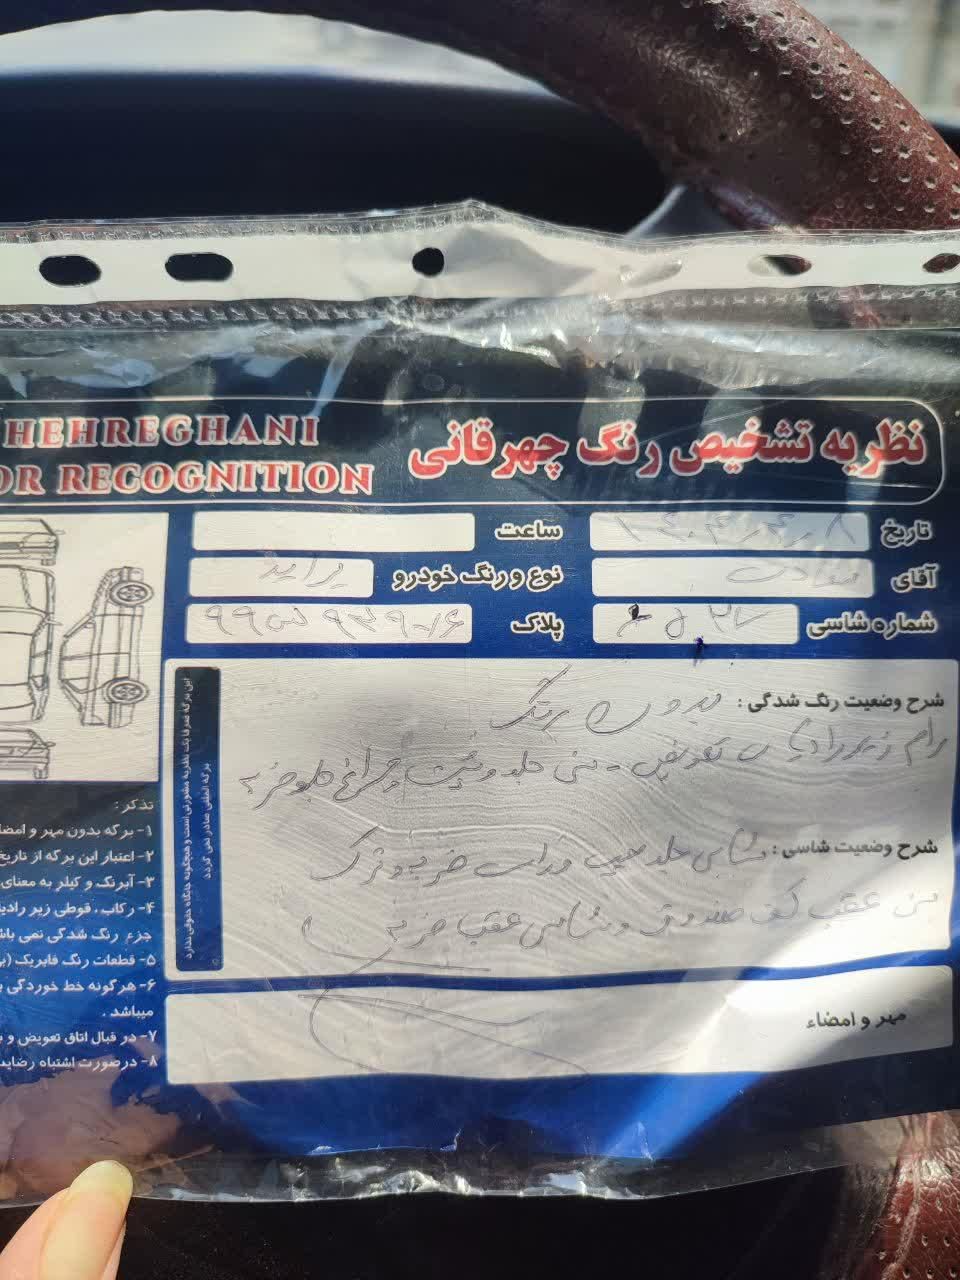 HEHREGHANI
OR RECOGNITION
نظریه تشخیص رنگ چهرقانی
تاریخ
ساعت
آقای سعادت
نوع و رنگ خودرو پراید
شماره شاسی
پلاک
شرح وضعیت رنگ شدگی : بدون رنگ
رام زیر رادیاتور تعویض - سینی جلو و پشت چراغ جلو ضربه
شرح وضعیت شاسی : شاسی جلو چپ و راست ضربه و ترک
سینی عقب کف صندوق و شاسی عقب ضربه
مهر و امضاء
این برگه صرفا یک نظریه مشورتی است و هیچگونه جایگاه حقوقی ندارد
برگه المثنی صادر نمی گردد
تذکر :
۱- برگه بدون مهر و امضا
۲- اعتبار این برگه از تاریخ
۳- آبرنگ و کیلر به معنای
۴- رکاب ، قوطی زیر رادیا
جزء رنگ شدگی نمی باش
۵- قطعات رنگ فابریک (بر
۶- هرگونه خط خوردگی ب
میباشد .
۷- در قبال اتاق تعویض و ب
۸- درصورت اشتباه رضایت